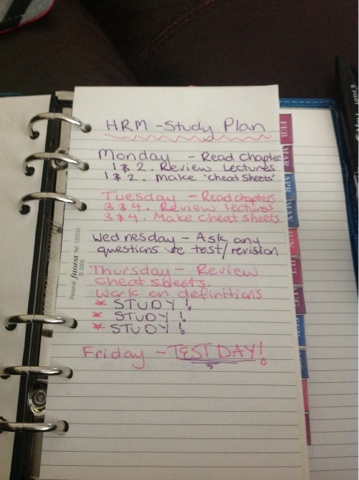 HRM - Study Plan
Monday - Read chapters
1 & 2. Review Lectures
1 & 2. Make 'cheat sheets'
Tuesday - Read chapters
3 & 4. Review lectures
3 & 4. Make cheat sheets
Wednesday - Ask any
questions re test/revision
Thursday - Review
cheat sheets.
Work on definitions
* STUDY!
* STUDY!
* STUDY!
Friday - TEST DAY!
Personal filofax
FEB
MAR
APR
MAY